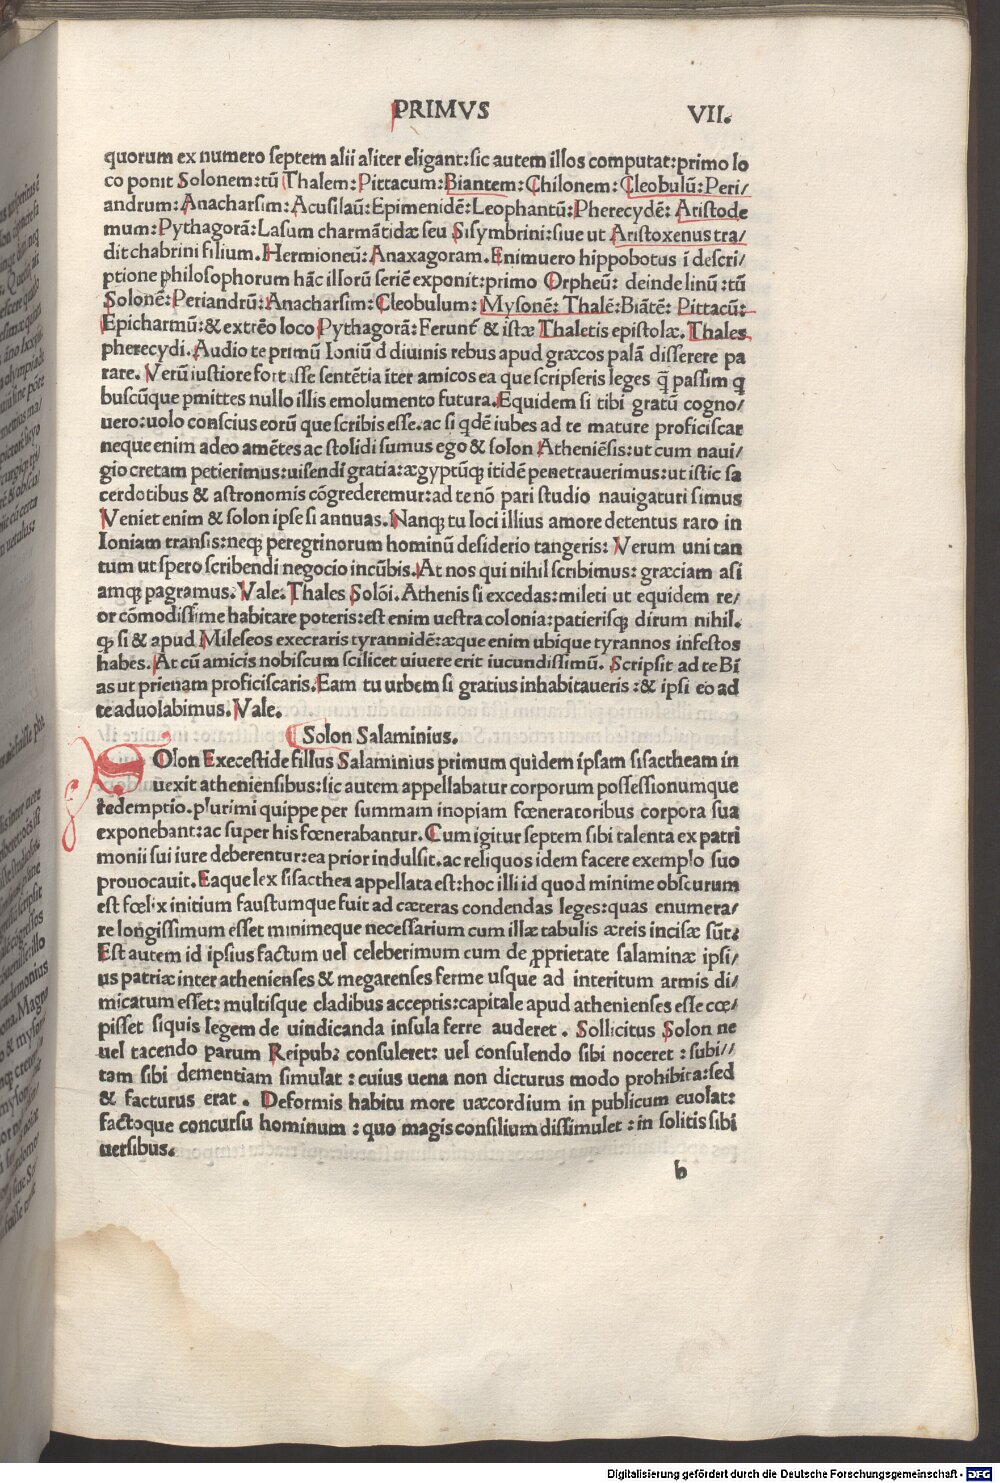 PRIMVS VII.
quorum ex numero ſeptem alii aliter eligant:ſic autem illos computat:primo lo
co ponit Solonem:tū Thalem:Pittacum:Biantem:Chilonem:Cleobulū:Peri/
andrum:Anacharſim:Acuſilaū:Epimenidē:Leophantū:Pherecydē:Ariſtode
mum:Pythagorā:Laſum charmātidæ ſeu Siſymbrini:ſiue ut Ariſtoxenus tra/
dit chabrini filium.Hermioneū:Anaxagoram.Enimuero hippobotus ī deſcri/
ptione philoſophorum hāc illorū ſeriē exponit:primo Orpheū: deinde linū :tū
Solonē:Periandrū:Anacharſim:Cleobulum:Myſonē: Thalē:Biātē: Pittacū:
Epicharmū:& extrēo loco Pythagorā:Ferunt̄ & iſtæ Thaletis epiſtolæ.Thales
pherecydi.Audio te primū Ioniū d diuinis rebus apud græcos palā diſſerere pa
rare. Verū iuſtiore fortaſſe ſentētia īter amicos ea que ſcripſeris leges q̄ paſſim q
buſcūque pmittes nullo illis emolumento futura.Equidem ſi tibi gratū cogno/
uero:uolo conſcius eorū que ſcribis eſſe.ac ſi qdē iubes ad te mature proficiſcar
neque enim adeo amētes ac ſtolidi ſumus ego & ſolon Atheniēſis:ut cum naui/
gio cretam petierimus:uiſendi gratia:ægyptūq; itidē penetrauerimus:ut iſtic ſa
cerdotibus & aſtronomis cōgrederemur:ad te nō pari ſtudio nauigaturi ſimus
Veniet enim & ſolon ipſe ſi annuas.Nanq; tu loci illius amore detentus raro in
Ioniam tranſis:neq; peregrinorum hominū deſiderio tangeris: Verum uni tan
tum ut ſpero ſcribendi negocio incūbis.At nos qui nihil ſcribimus: græciam aſi
amq; pagramus. Vale.Thales Solōi.Athenis ſi excedas:mileti ut equidem re/
or cōmodiſſime habitare poteris:eſt enim ueſtra colonia:patieriſq; dirum nihil.
q; ſi & apud Mileſeos execraris tyrannidē:æque enim ubique tyrannos infeſtos
habes.At cū amicis nobiſcum ſcilicet uiuere erit iucundiſſimū. Scripſit ad te Bī
as ut prienam proficiſcaris.Eam tu urbem ſi gratius inhabitaueris :& ipſi eo ad
te aduolabimus.Vale.
Solon Salaminius.
SOlon Execeſtide filius Salaminius primum quidem ipſam ſiſactheam in
uexit athenienſibus:ſic autem appellabatur corporum poſſeſſionumque
redemptio.plurimi quippe per ſummam inopiam fœneratoribus corpora ſua
exponebant:ac ſuper his fœnerabantur.Cum igitur ſeptem ſibi talenta ex patri
monii ſui iure deberentur:ea prior indulſit.ac reliquos idem facere exemplo ſuo
prouocauit.Eaque lex ſiſacthea appellata eſt:hoc illi id quod minime obſcurum
eſt fœlix initium fauſtumque fuit ad cæteras condendas leges:quas enumera/
re longiſſimum eſſet minimeque neceſſarium cum illæ tabulis æreis inciſæ ſūt:
Eſt autem id ipſius factum uel celeberimum cum de ꝓprietate ſalaminæ ipſi/
us patriæ inter athenienſes & megarenſes ferme uſque ad interitum armis di/
micatum eſſet: multiſque cladibus acceptis:capitale apud athenienſes eſſe cœ/
piſſet ſiquis legem de uindicanda inſula ferre auderet . Sollicitus Solon ne
uel tacendo parum Reipub; conſuleret: uel conſulendo ſibi noceret :ſubi//
tam ſibi dementiam ſimulat :cuius uena non dicturus modo prohibita:ſed
& facturus erat . Deformis habitu more uæcordium in publicum euolat:
factoque concurſu hominum :quo magis conſilium diſſimulet :in ſolitis ſibi
uerſibus.
b
Digitalisierung gefördert durch die Deutsche Forschungsgemeinschaft - DFG